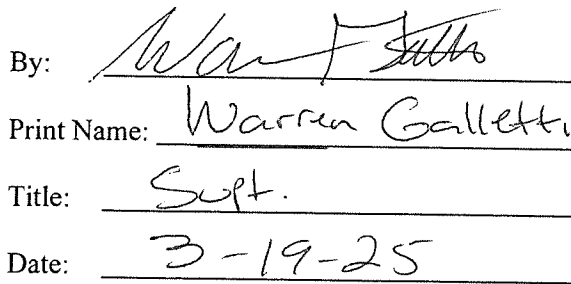 By:
Print Name: Warren Galletti
Title: Supt.
Date: 3-19-25